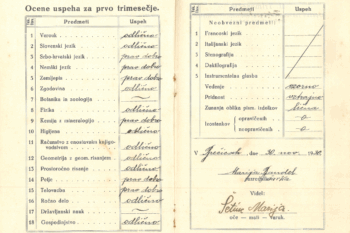 Ocene uspeha za prvo trimesečje.
Predmeti Uspeh
1 Veronauk odlično
2 Slovenski jezik odlično
3 Srbo-hrvatski jezik prav dobro
4 Nemški jezik prav dobro
5 Zemljepis prav dobro
6 Zgodovina odlično
7 Botanika in zoologija —
8 Fizika odlično
9 Kemija z mineralogijo prav dobro
10 Higijena odlično
11 Računstvo z enostavnim knjigovodstvom odlično
12 Geometrija z geom. risanjem odlično
13 Prostoročno risanje odlično
14 Petje prav dobro
15 Telovadba prav dobro
16 Ročno delo odlično
17 Državljanski nauk —
18 Gospodinjstvo odlično
Predmeti Uspeh
Neobvezni predmeti:
1 Francoski jezik
2 Italijanski jezik
3 Stenografija
4 Daktilografija
5 Instrumentalna glasba
Vedenje vzorno
Pridnost
Zunanja oblika pism. izdelkov lična
Izostankov opravičenih 0
neopravičenih 0
V dne 30. nov. 19
Marija
Videl:
Marija
oče — mati — varuh.